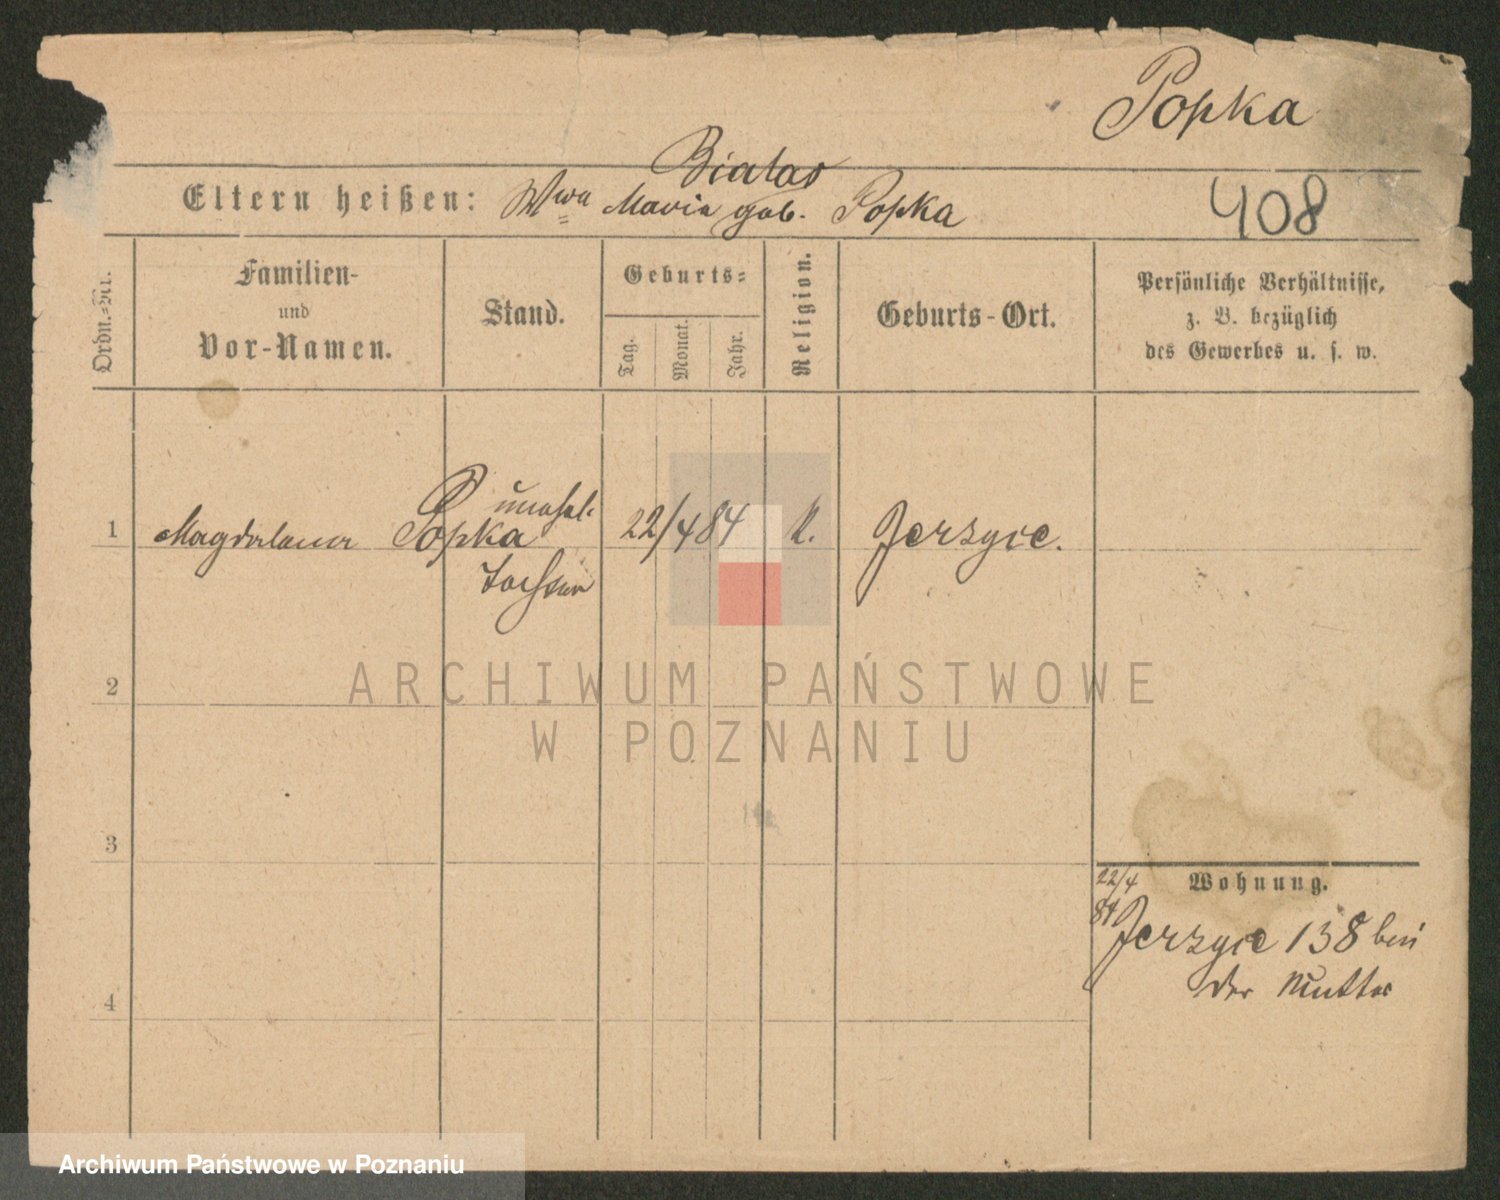 Popka
Bialas
Eltern heißen: Wwe Maria geb. Popka
408
Ordn.-Nr.
Familien-
und
Vor-Namen.
Stand.
Geburts-
Tag.
Monat.
Jahr.
Religion.
Geburts-Ort.
Persönliche Verhältnisse,
z. B. bezüglich
des Gewerbes u. s. w.
1 Magdalena Popka unehel. Tochter 22/4 84 K. Jerzyce.
2
3
4
Wohnung.
22/4
84
Jerzyce 138 bei
der Mutter
ARCHIWUM PAŃSTWOWE
W POZNANIU
Archiwum Państwowe w Poznaniu